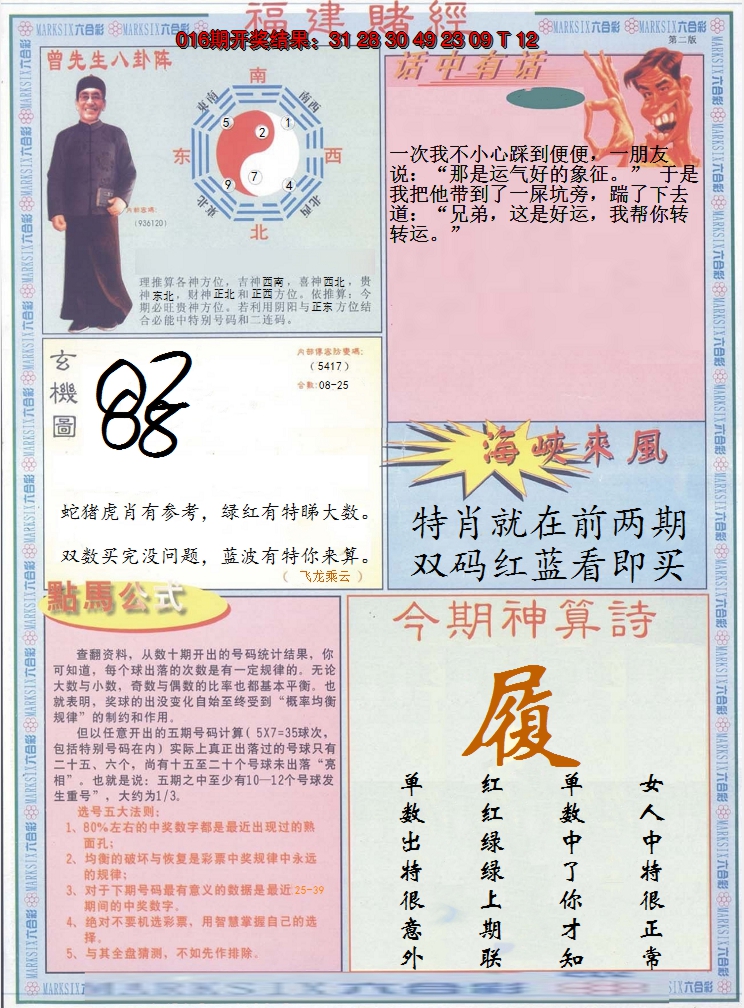 福建賭經
016期开奖结果：31 28 30 49 23 09 T 12
第二版
MARKSIX六合彩
曾先生八卦阵
南
東南
南西
5
2
1
东
西
9
7
4
東北
北西
北
内部密碼：
（936120）
理推算各神方位，吉神西南，喜神西北，贵
神东北，财神正北和正西方位。依推算：今
期必旺贵神方位。若利用阴阳与正东方位结
合必能中特别号码和二连码。
话中有话
一次我不小心踩到便便，一朋友
说：“那是运气好的象征。” 于是
我把他带到了一屎坑旁，踹了下去
道：“兄弟，这是好运，我帮你转
转运。”
玄機圖
（5417）
合数:08-25
蛇猪虎肖有参考，绿红有特睇大数。
双数买完没问题，蓝波有特你来算。
（飞龙乘云）
海峽來風
特肖就在前两期
双码红蓝看即买
點馬公式
查翻资料，从数十期开出的号码统计结果，你
可知道，每个球出落的次数是有一定规律的。无论
大数与小数，奇数与偶数的比率也都基本平衡。也
就表明，奖球的出没变化自始至终受到“概率均衡
规律”的制约和作用。
但以任意开出的五期号码计算（5X7=35球次，
包括特别号码在内）实际上真正出落过的号球只有
二十五、六个，尚有十五至二十个号球未出落“亮
相”。也就是说：五期之中至少有10—12个号球发
生重号”，大约为1/3。
选号五大法则：
1、80%左右的中奖数字都是最近出现过的熟
面孔；
2、均衡的破坏与恢复是彩票中奖规律中永远
的规律；
3、对于下期号码最有意义的数据是最近25-39
期间的中奖数字。
4、绝对不要机选彩票，用智慧掌握自己的选
择。
5、与其全盘猜测，不如先作排除。
今期神算詩
履
女人中特很正常
单数中了你才知
红红绿绿上期联
单数出特很意外